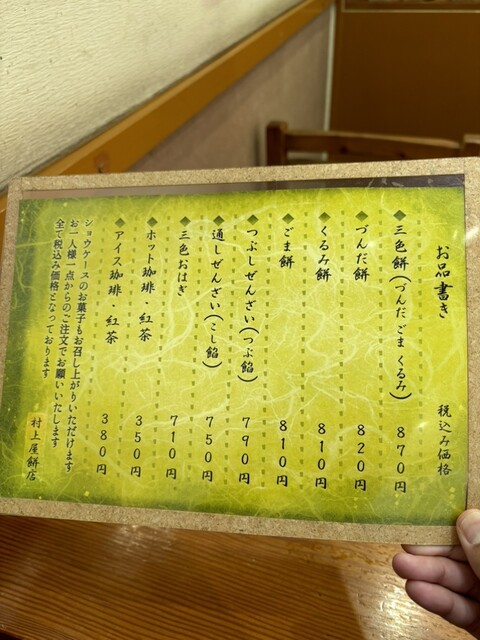 お品書き 税込み価格
◆三色餅(づんだ ごま くるみ) 870円
◆づんだ餅 820円
◆くるみ餅 810円
◆ごま餅 810円
◆つぶしぜんざい(つぶ餡) 790円
◆通しぜんざい(こし餡) 750円
◆三色おはぎ 710円
◆ホット珈琲・紅茶 350円
◆アイス珈琲・紅茶 380円
ショウケースのお菓子もお召し上がりいただけます
お一人様一点からのご注文でお願いいたします
全て税込み価格となっております
村上屋餅店